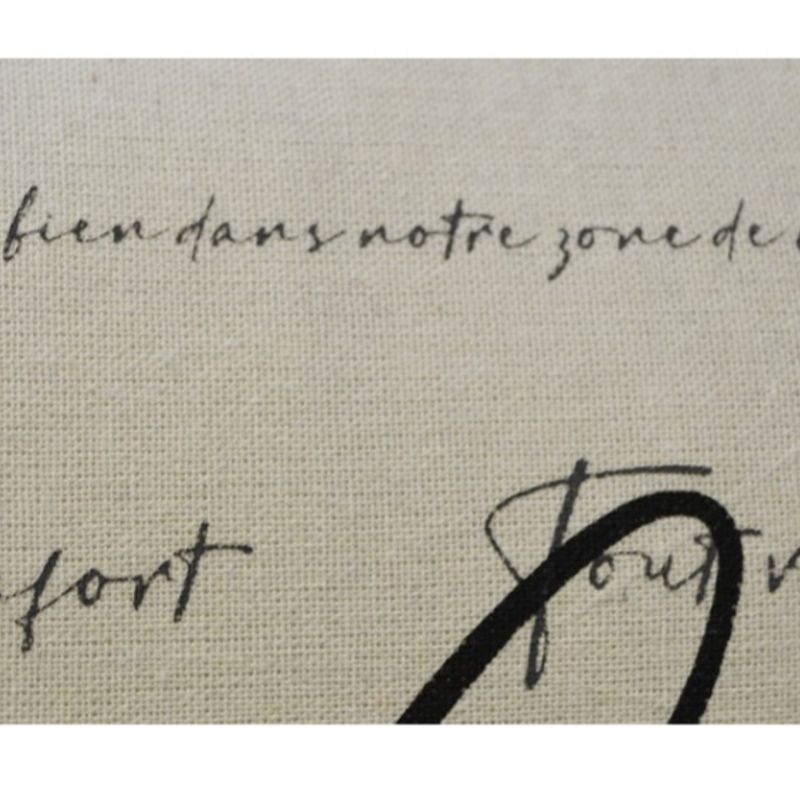 bien dans notre zone de
fort Tout